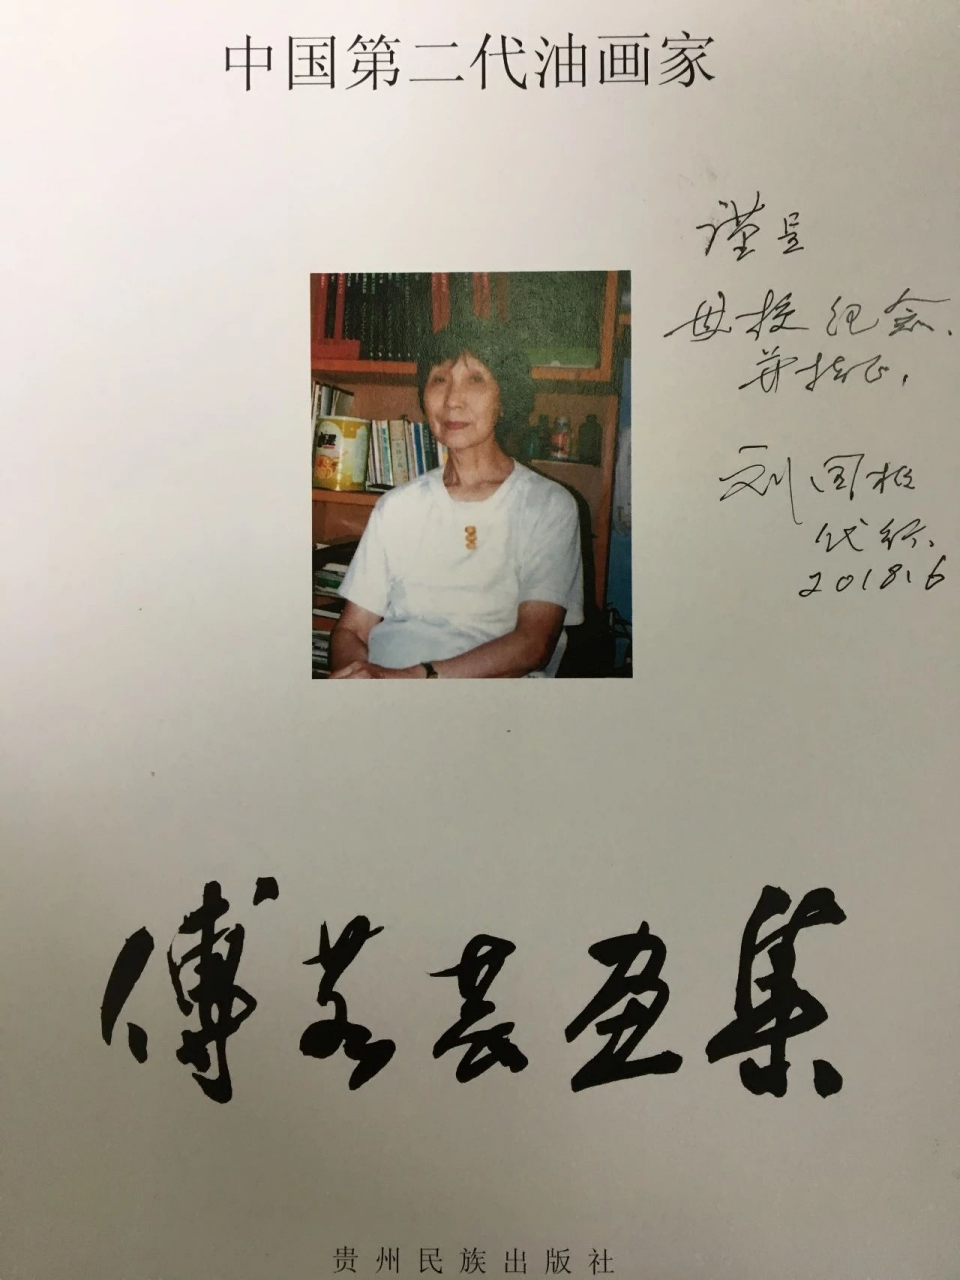 中国第二代油画家
谨呈
母校纪念、
并指正,
刘国枢
代
2018.6
傅若芸画集
贵州民族出版社